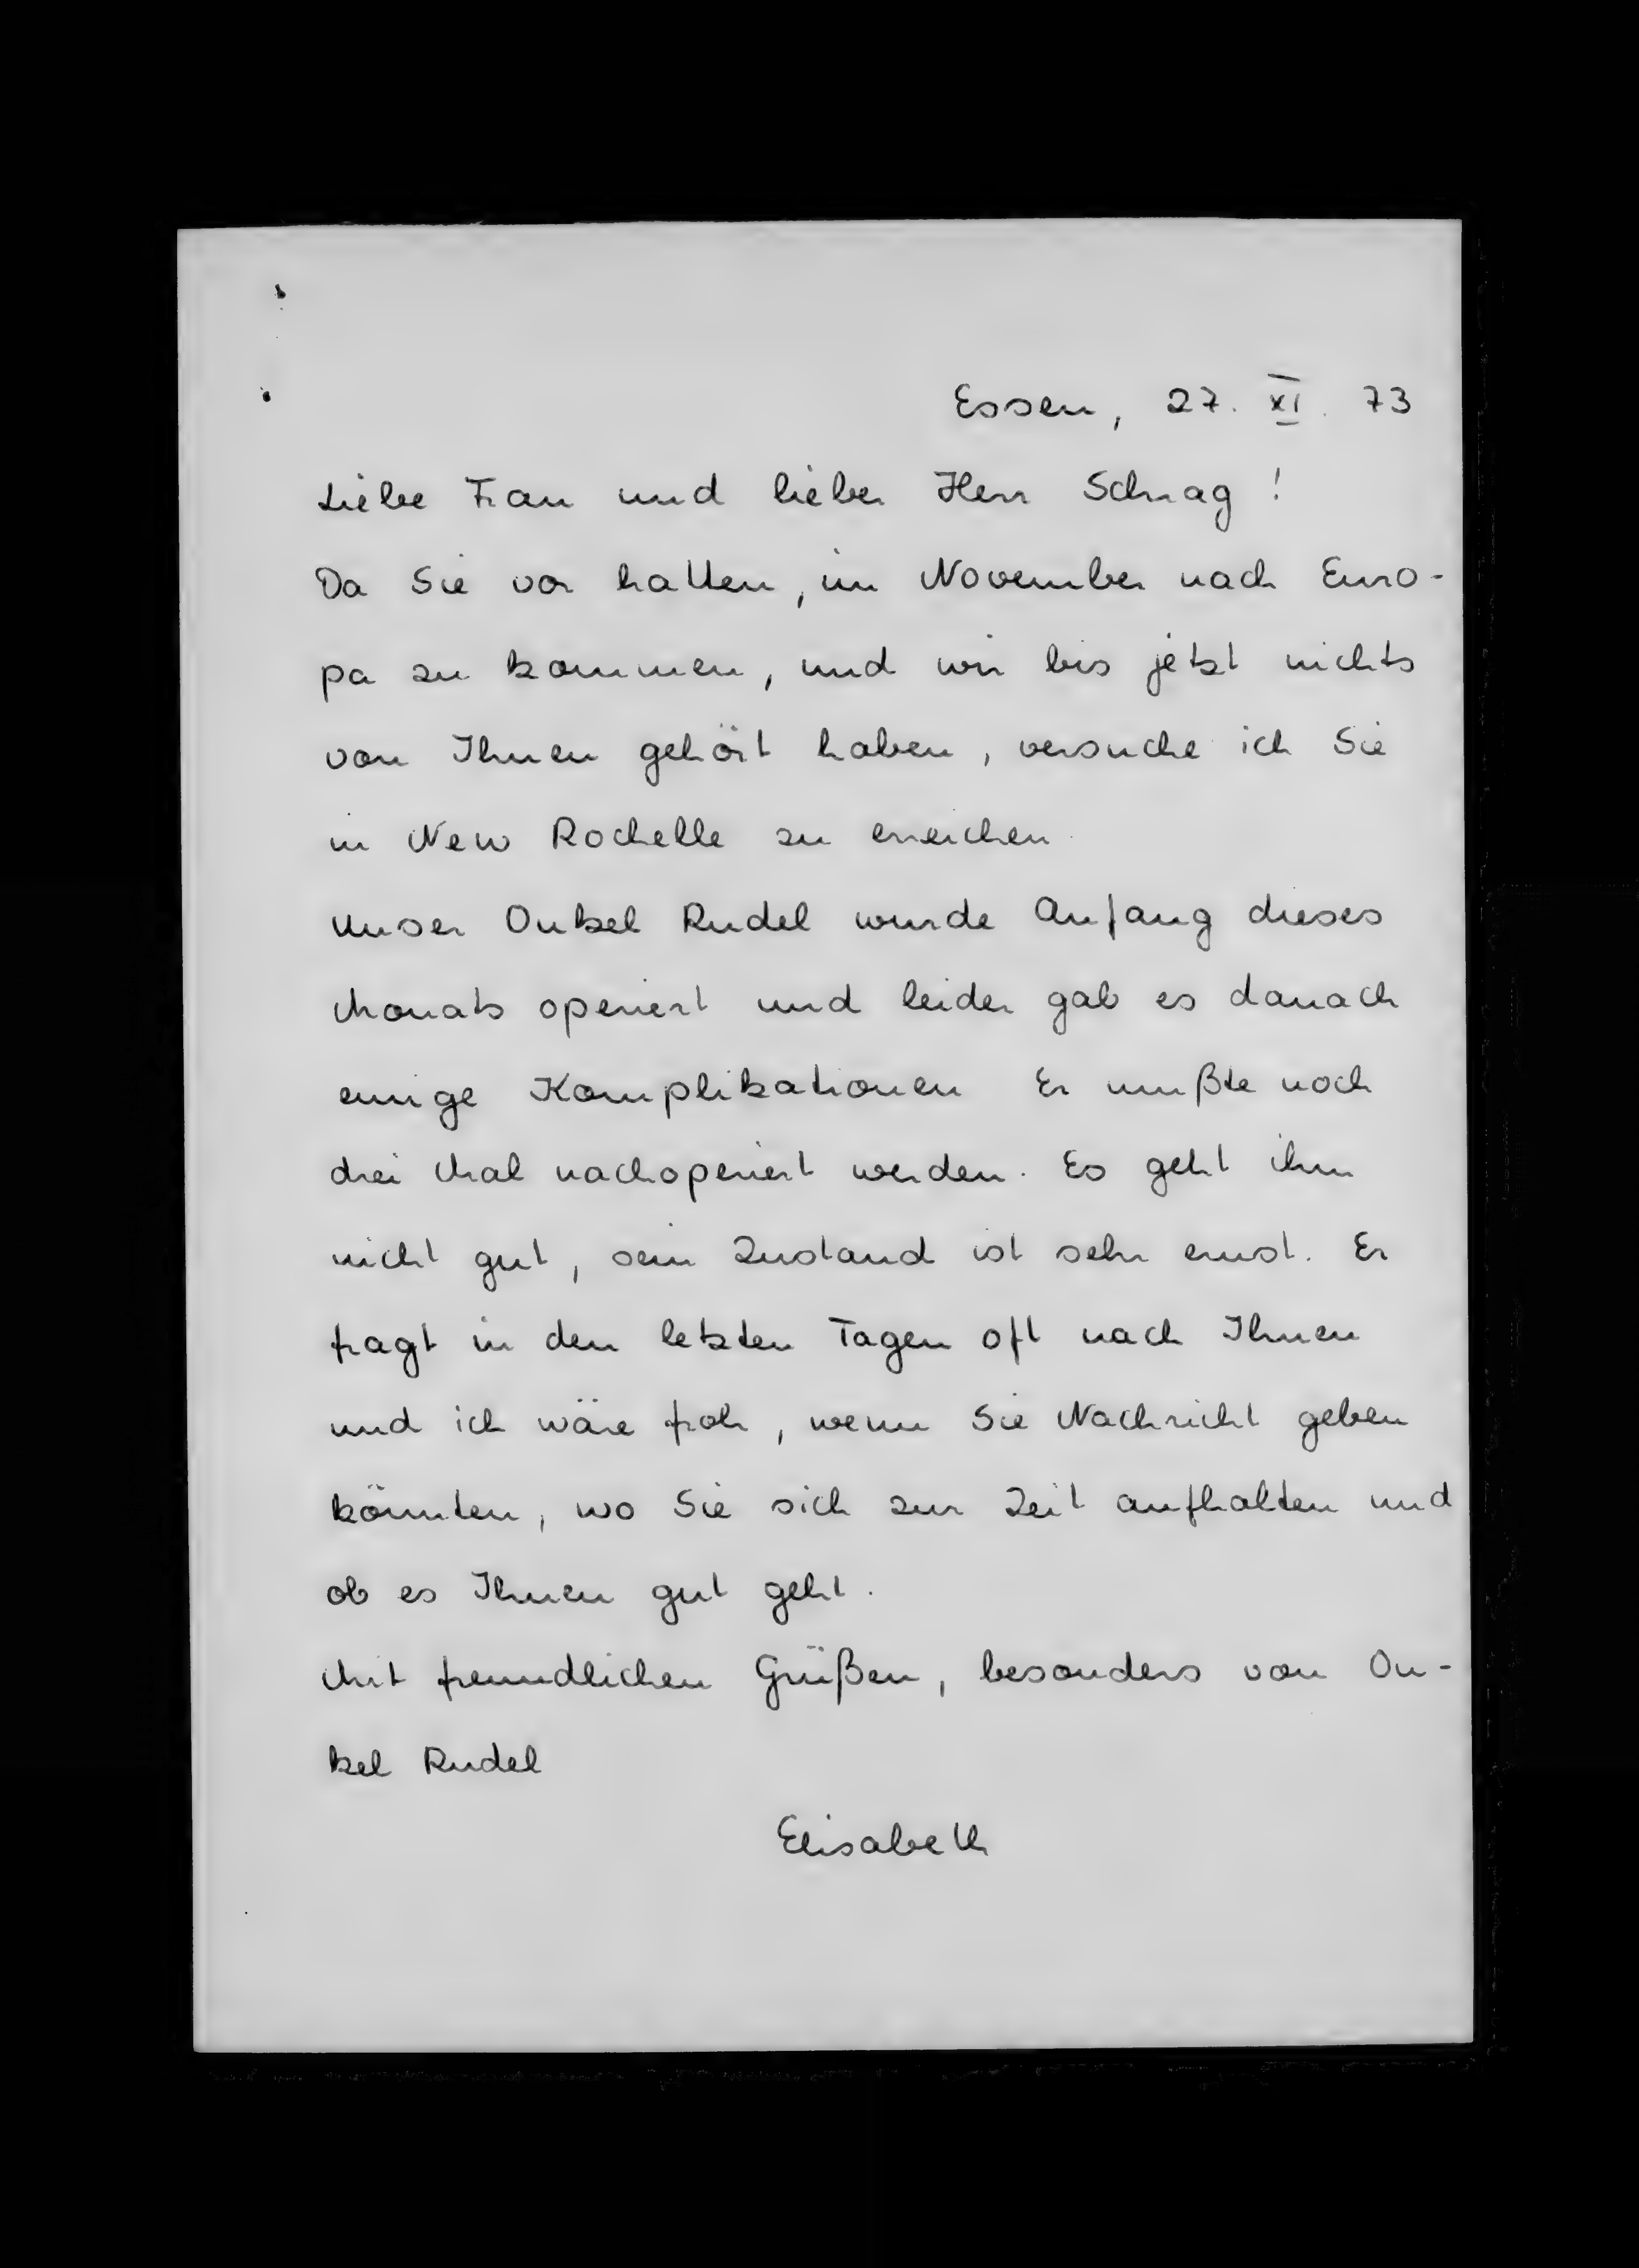 Essen, 27. XI. 73
Liebe Frau und lieber Herr Schrag!
Da Sie vor hatten, im November nach Euro-
pa zu kommen, und wir bis jetzt nichts
von Ihnen gehört haben, versuche ich Sie
in New Rochelle zu erreichen.
Unser Onkel Rudel wurde Anfang dieses
Monats operiert und leider gab es danach
einige Komplikationen Er mußte noch
drei Mal nachoperiert werden. Es geht ihm
nicht gut, sein Zustand ist sehr ernst. Er
fragt in den letzten Tagen oft nach Ihnen
und ich wäre froh, wenn Sie Nachricht geben
könnten, wo Sie sich zur Zeit aufhalten und
ob es Ihnen gut geht.
Mit freundlichen Grüßen, besonders von On-
kel Rudel
Elisabeth